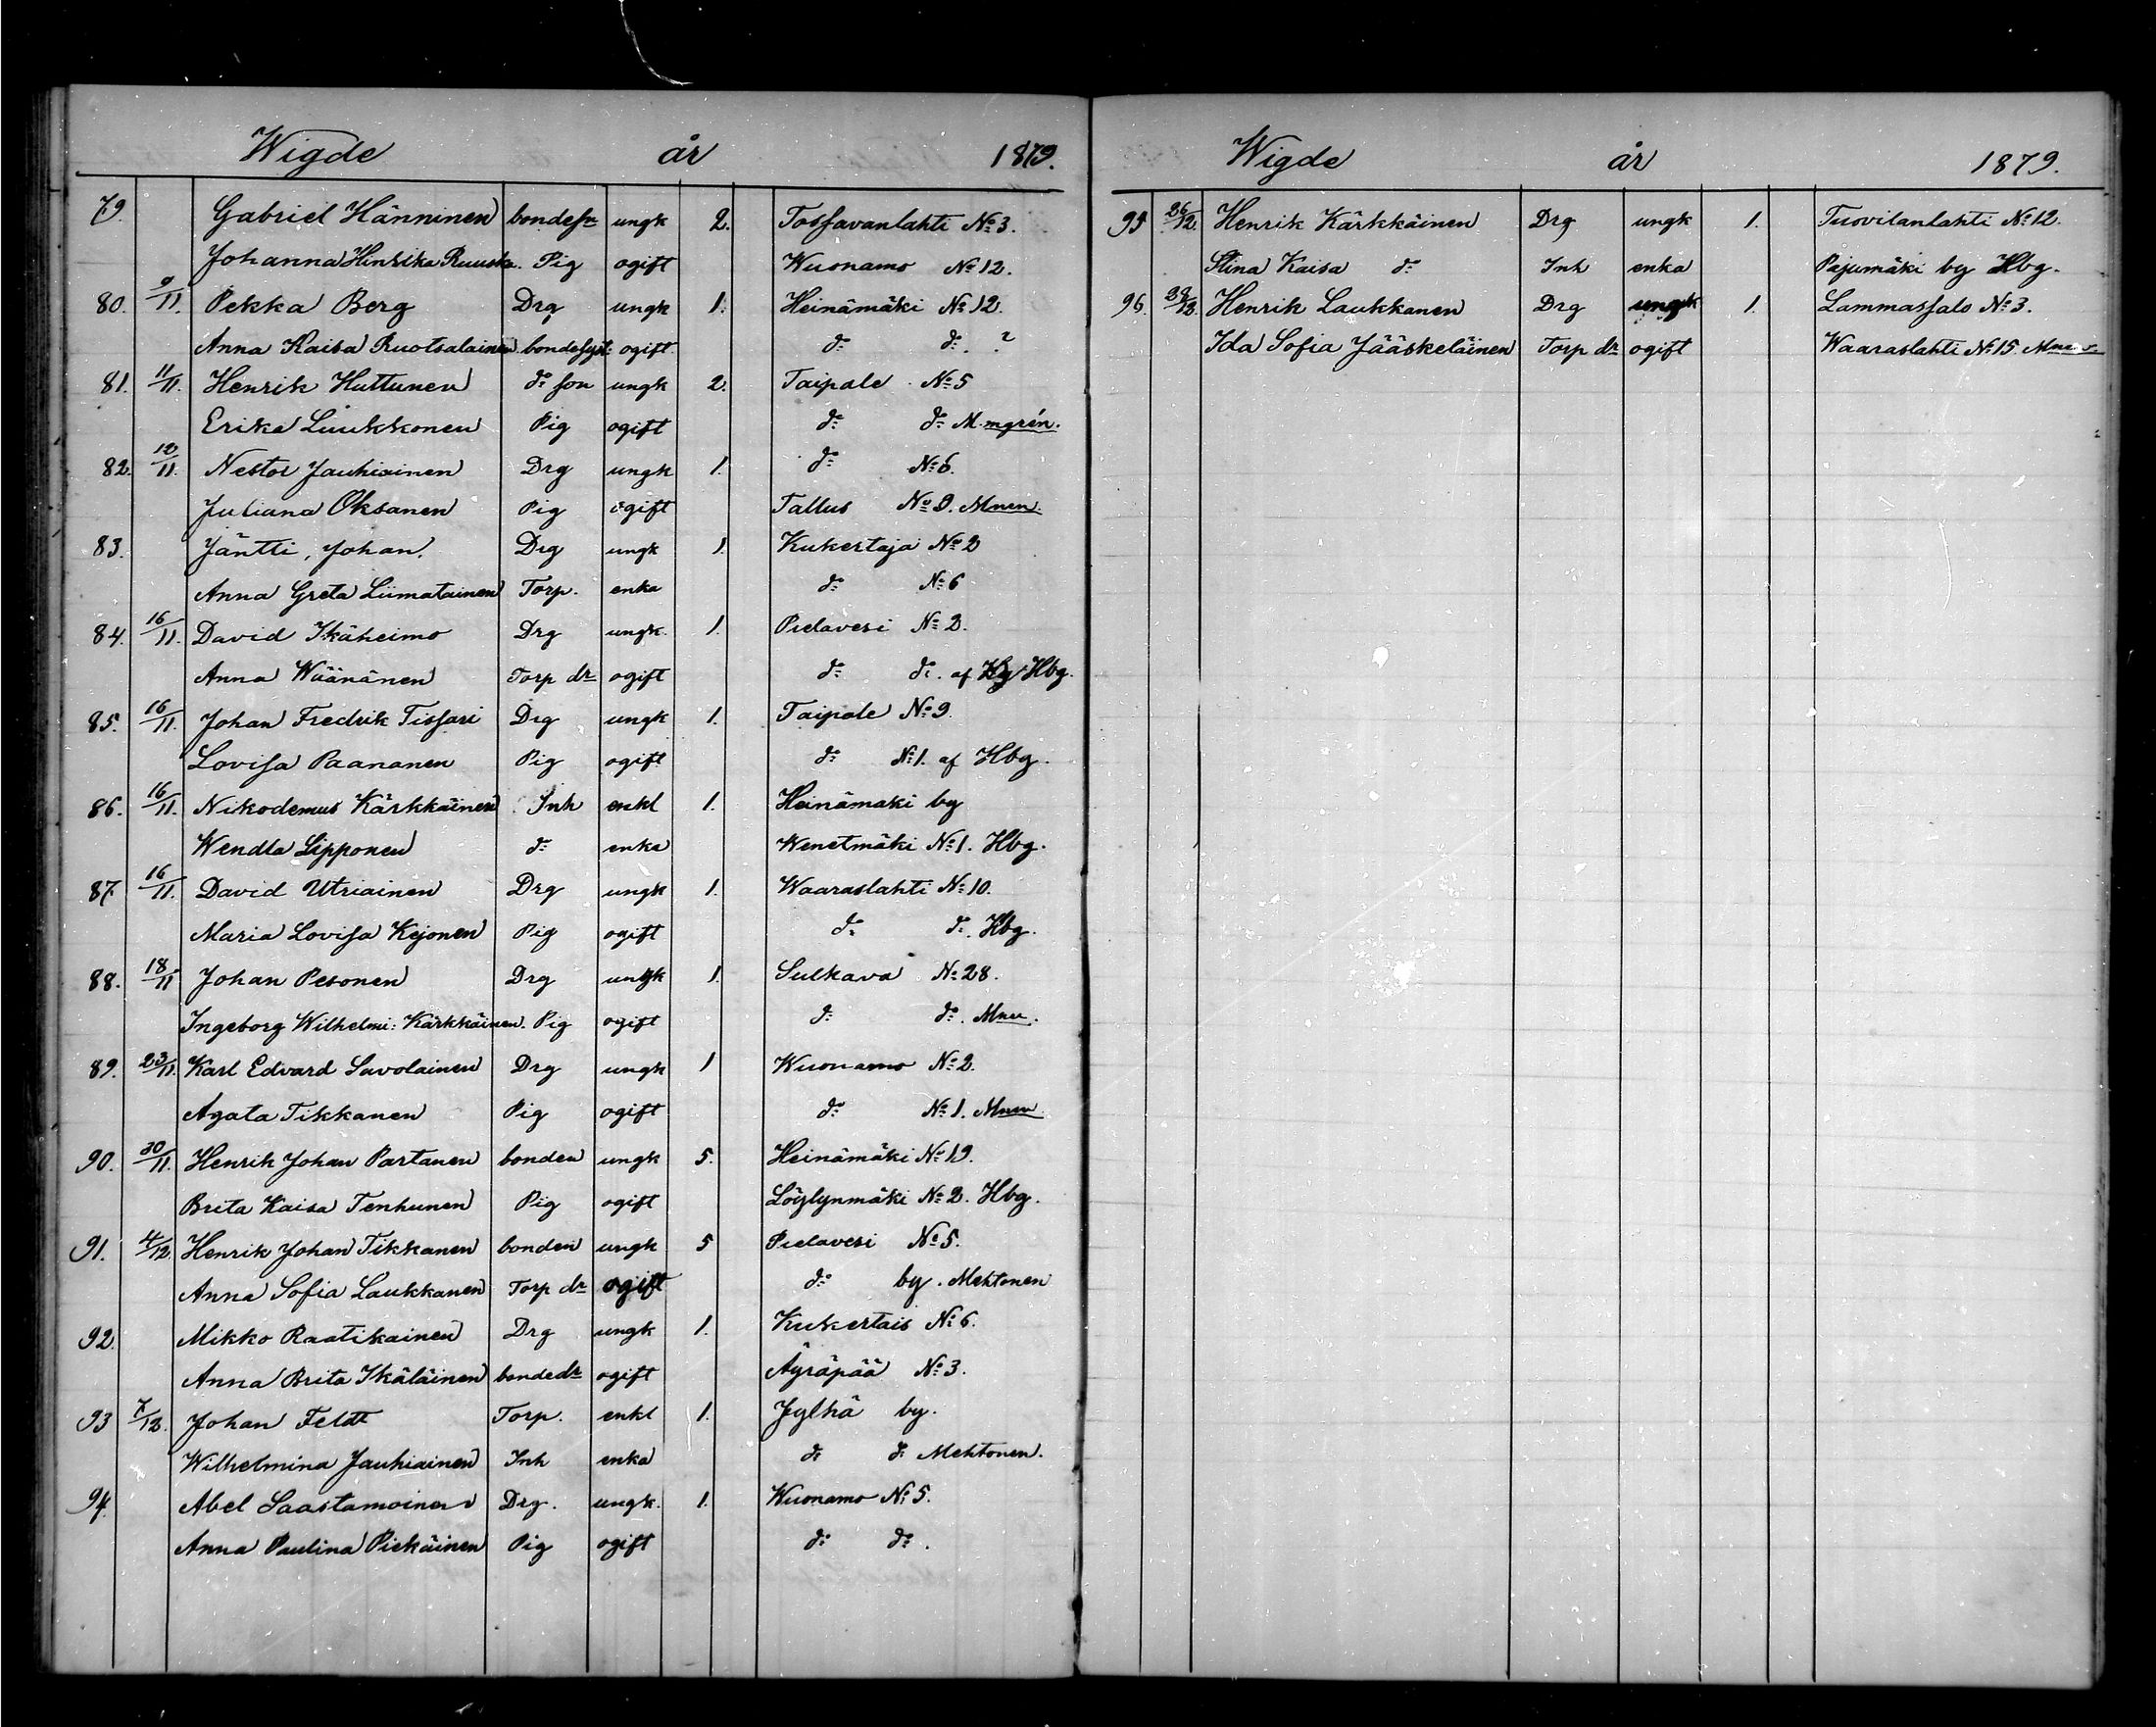 Wigde år 1879.
79. Gabriel Hänninen bondesn ungk 2. Tossavanlahti No 3.
Johanna Hinrika Ruuska. Pig ogift Wuonamo No 12.
80. 9/11. Pekka Berg Drg ungk 1. Heinämäki No 12.
Anna Kaisa Ruotsalainen bondesyst: ogift do do. ?
81. 11/11. Henrik Huttunen do son ungk 2. Taipale No 5
Erika Liukkonen Pig ogift do do M.mgrén.
82. 12/11. Nestor Jauhiainen Drg ungk 1. do No 6.
Juliana Oksanen Pig ogift Tallus No 9. Mnen.
83. Jäntti, Johan. Drg ungk 1. Kukertaja No 2
Anna Greta Liimatainen Torp. enka do No 6
84. 16/11. David Ikäheimo Drg ungk. 1. Pielavesi No 2.
Anna Wäänänen Torp dr ogift do do. af Hbg.
85. 16/11. Johan Fredrik Tissari Drg ungk 1. Taipale No 9.
Lovisa Paananen Pig ogift do No 1. af Hbg.
86. 16/11. Nikodemus Kärkkäinen Inh enkl 1. Heinämäki by
Wendla Lipponen do enka Wenetmäki No 1. Hbg.
87 16/11. David Utriainen Drg ungk 1. Waaraslahti No 10.
Maria Lovisa Kejonen Pig ogift do do. Hbg.
88. 18/11 Johan Pesonen Drg ungk 1. Sulkava No 28.
Ingeborg Wilhelmi: Kärkkäinen. Pig ogift do do. Mnen.
89. 23/11. Karl Edvard Savolainen Drg ungk 1 Wuonamo No 2.
Agata Tikkanen Pig ogift do No 1. Mnen
90. 30/11. Henrik Johan Partanen bonden ungk 5. Heinämäki No 19.
Brita Kaisa Tenhunen Pig ogift Löylynmäki No 2. Hbg.
91. 4/12. Henrik Johan Tikkanen bonden ungk 5 Pielavesi No 5.
Anna Sofia Laukkanen Torp dr ogift do by. Mehtonen
92. Mikko Raatikainen Drg ungk 1. Kukertais No 6.
Anna Brita Ikäläinen bondedr ogift Äyräpää No 3.
93 7/12. Johan Feldt Torp. enkl 1. Jylhä by.
Wilhelmina Jauhiainen Inh enka do do Mehtonen.
94. Abel Saastamoinen Drg. ungk. 1. Wuonamo No 5.
Anna Paulina Piekäinen Pig ogift do do.
Wigde år 1879.
95 26/12. Henrik Kärkkäinen Drg ungk 1. Tuovilanlahti No 12.
Stina Kaisa do Inh enka Pajumäki by Hbg.
96. 28/12. Henrik Laukkanen Drg ungk 1. Lammassalo No 3.
Ida Sofia Jääskeläinen Torp dr ogift Waaraslahti No 15.